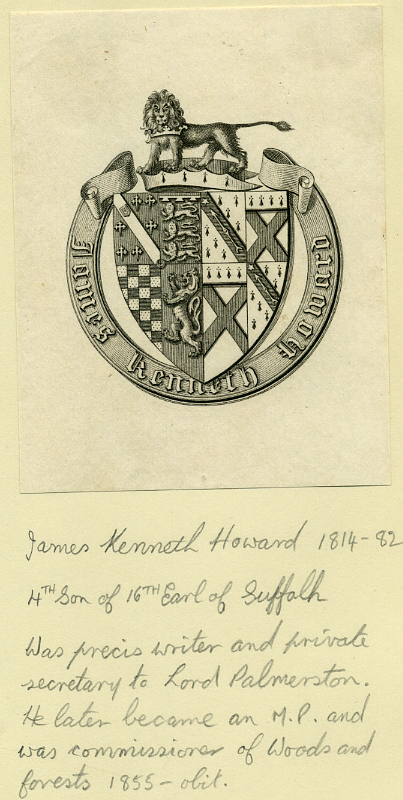 James Kenneth Howard
James Kenneth Howard 1814-82
4TH Son of 16TH Earl of Suffolk
Was precis writer and private
secretary to Lord Palmerston.
He later became an M.P. and
was commissioner of Woods and
forests 1855 - obit.